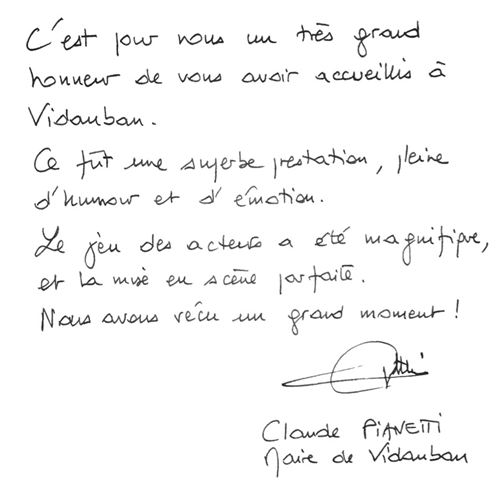 C'est pour nous un très grand
honneur de vous avoir accueillis à
Vidauban.
Ce fût une superbe prestation, pleine
d'humour et d'émotion.
Le jeu des acteurs a été magnifique,
et la mise en scène parfaite.
Nous avons vécu un grand moment !
Claude PIANETTI
Maire de Vidauban